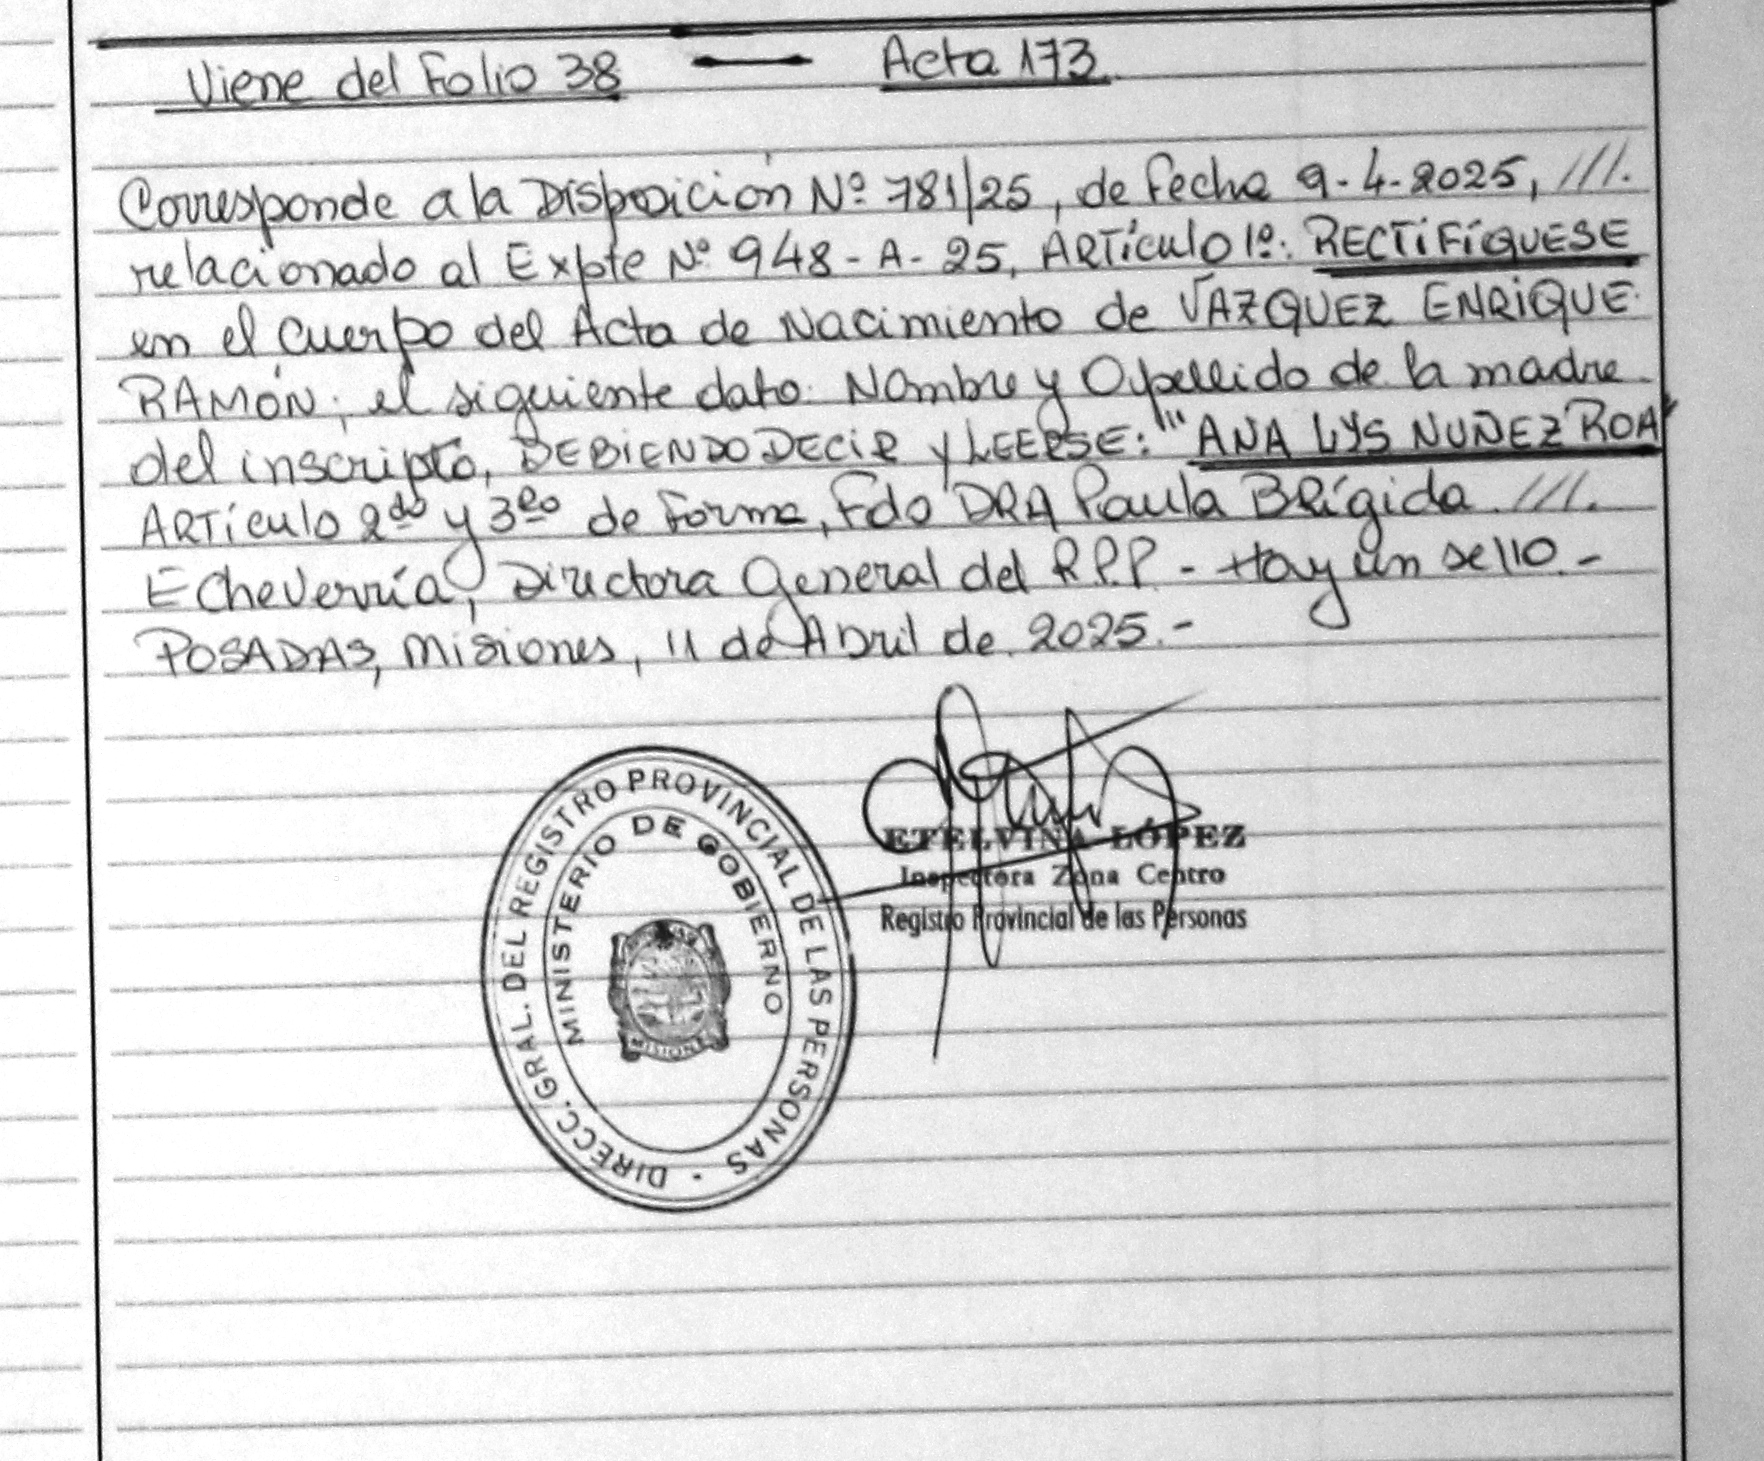 Viene del Folio 38 — Acta 173
Corresponde a la Disposición Nº 781/25, de fecha 9-4-2025, ///.
relacionado al Expte Nº 948-A-25, ARTÍCULO 1º: RECTIFÍQUESE
en el cuerpo del Acta de Nacimiento de VAZQUEZ ENRIQUE
RAMÓN; el siguiente dato: Nombre y Apellido de la madre
del inscripto, DEBIENDO DECIR y LEERSE: "ANA LYS NUÑEZ ROA"
ARTÍCULO 2do y 3ro de Forma, Fdo DRA Paula Brígida ///.
Echeverría, Directora General del R.P.P. - Hay un sello.-
POSADAS, Misiones, 11 de Abril de 2025.-
DIRECC. GRAL. DEL REGISTRO PROVINCIAL DE LAS PERSONAS
MINISTERIO DE GOBIERNO
MISIONES
ETELVINA LÓPEZ
Inspectora Zona Centro
Registro Provincial de las Personas